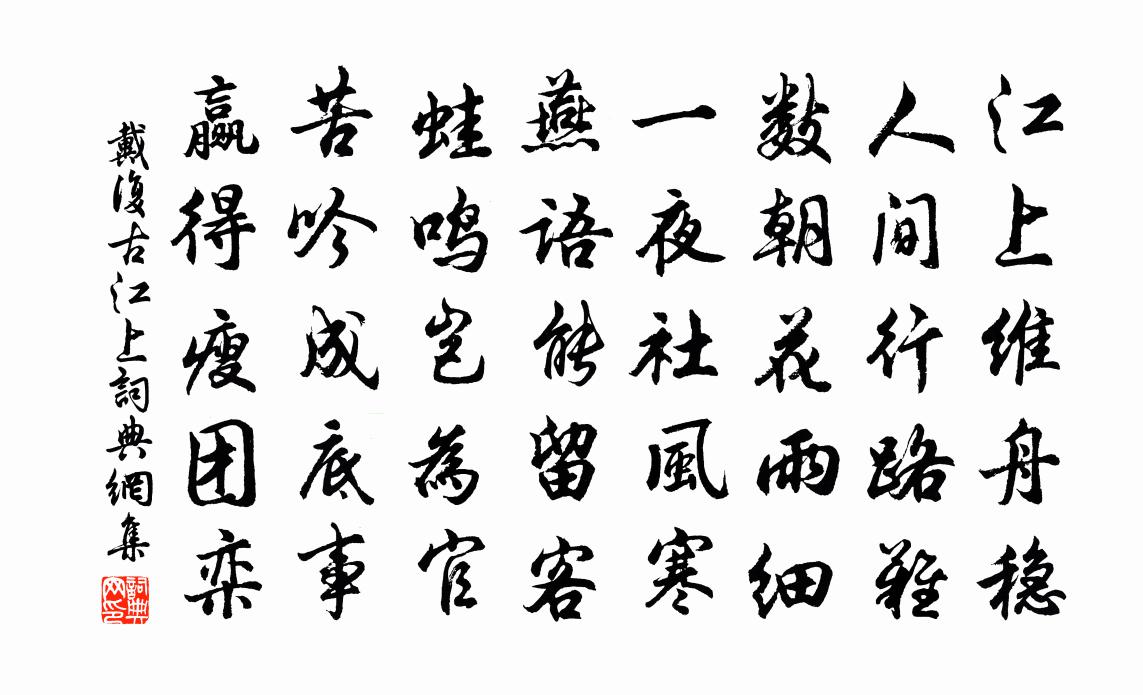 江上维舟稳
人间行路難
数朝花雨细
一夜社風寒
燕语能留客
蛙鸣岂為官
苦吟成底事
赢得瘦团栾
戴復古江上詞典網集
詞典
网印